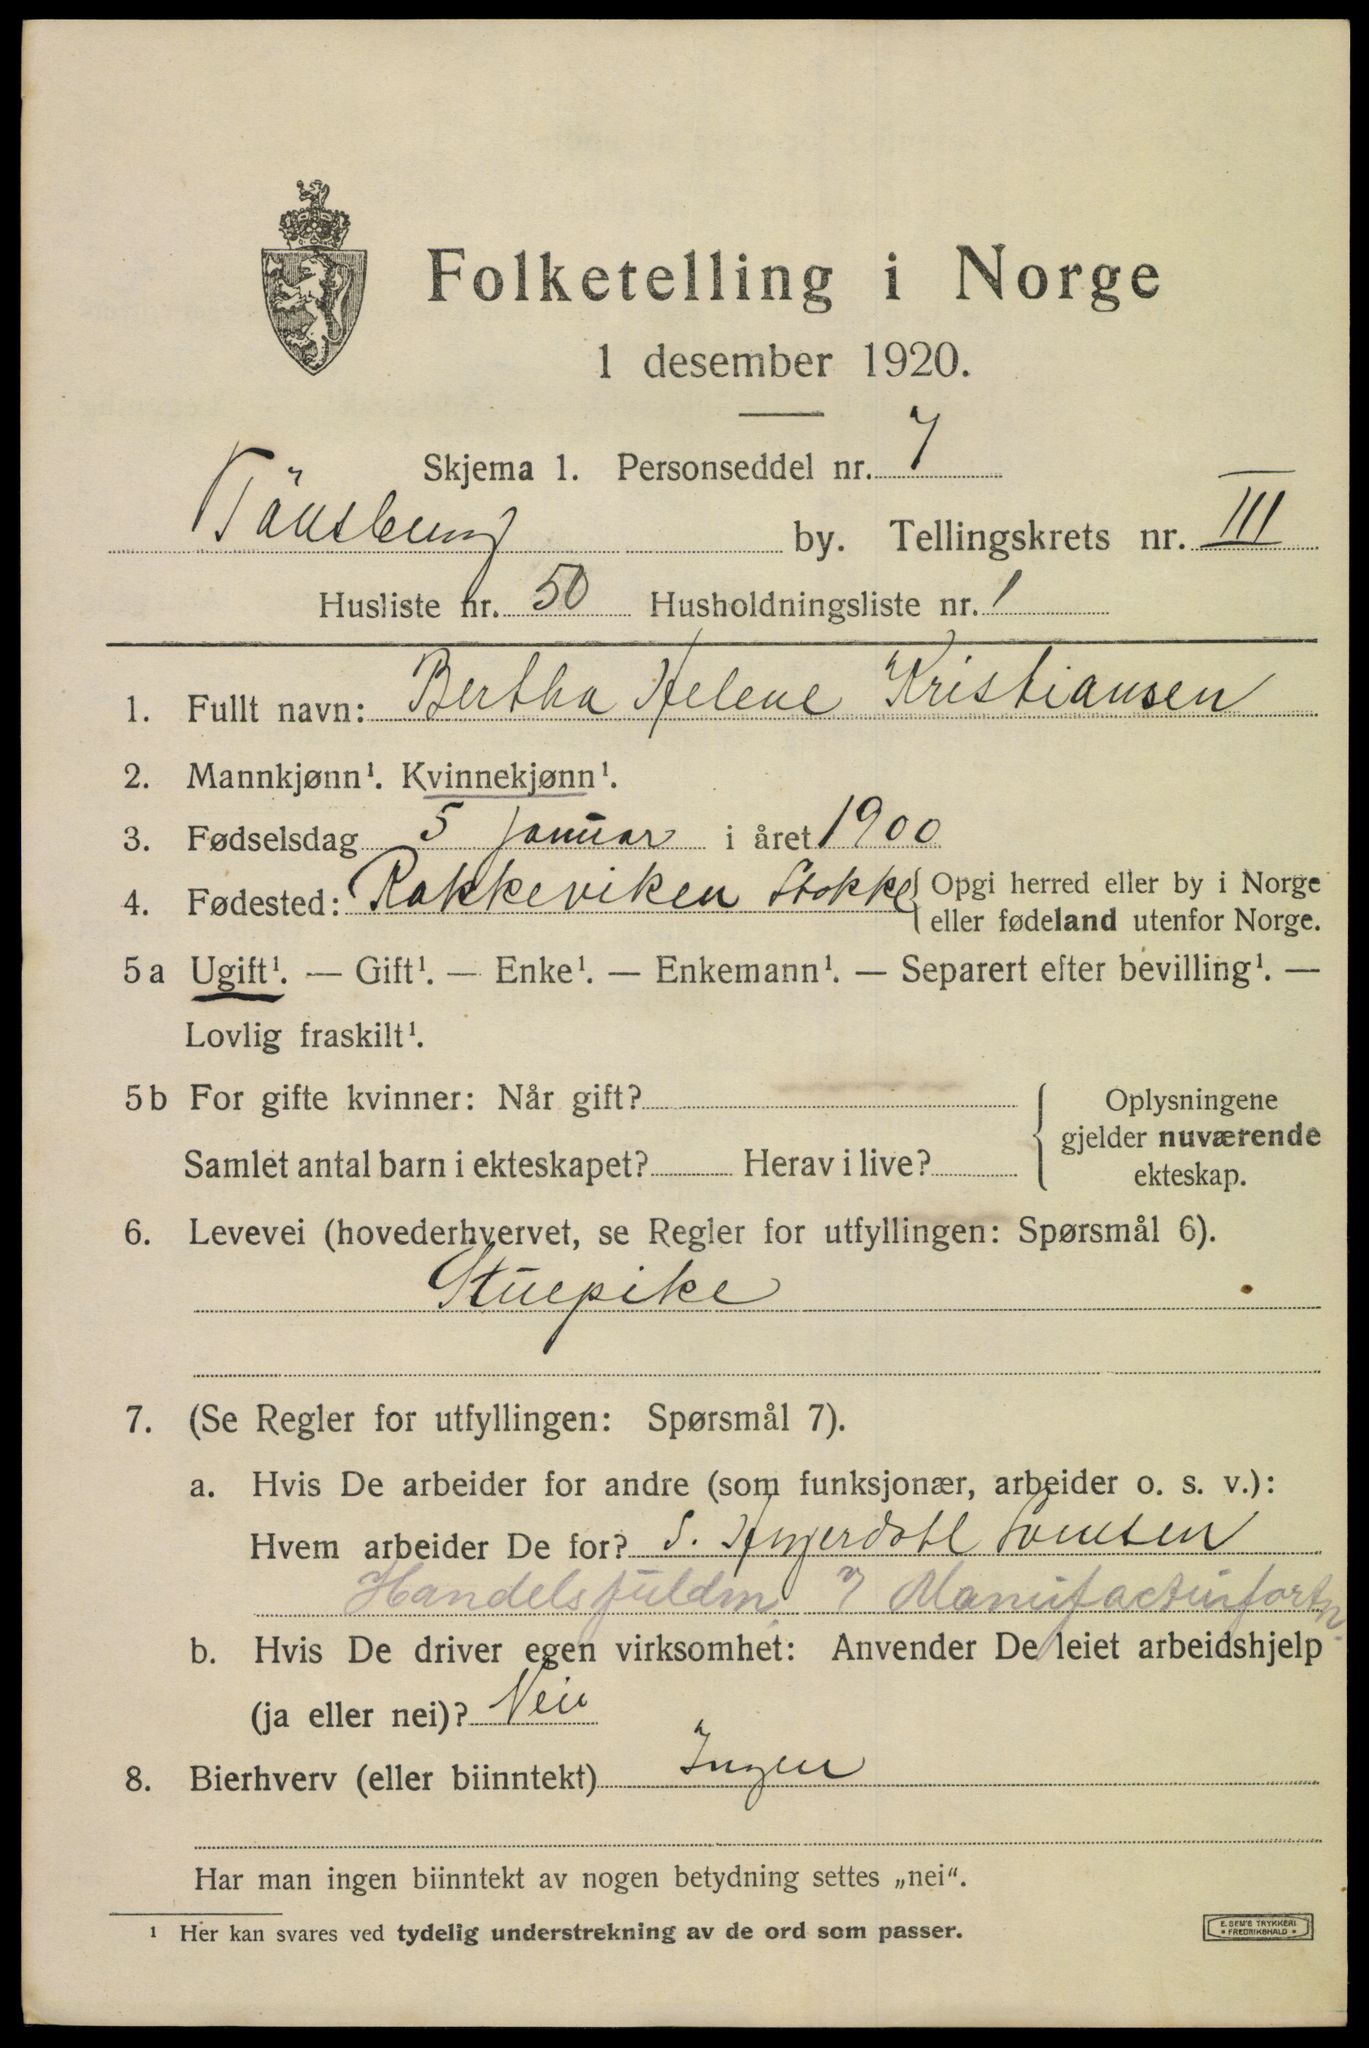 Folketelling i Norge
1 desember 1920.
Skjema 1. Personseddel nr. 7
Tönsberg by. Tellingskrets nr. III
Husliste nr. 50 Husholdningsliste nr. 1
1. Fullt navn: Bertha Helene Kristiansen
2. Mannkjønn¹. Kvinnekjønn¹.
3. Fødselsdag 5 januar i året 1900
4. Fødested: Rakkeviken Stokke { Opgi herred eller by i Norge
eller fødeland utenfor Norge.
5a Ugift¹. — Gift¹. — Enke¹. — Enkemann¹. — Separert efter bevilling¹. —
Lovlig fraskilt¹.
5b For gifte kvinner: Når gift?
Samlet antal barn i ekteskapet? Herav i live?
Oplysningene
gjelder nuværende
ekteskap.
6. Levevei (hovederhvervet, se Regler for utfyllingen: Spørsmål 6).
Stuepike
7. (Se Regler for utfyllingen: Spørsmål 7).
a. Hvis De arbeider for andre (som funksjonær, arbeider o. s. v.):
Hvem arbeider De for? S.
Handelsfuldm.
b. Hvis De driver egen virksomhet: Anvender De leiet arbeidshjelp
(ja eller nei)? Nei
8. Bierhverv (eller biinntekt) Ingen
Har man ingen biinntekt av nogen betydning settes „nei“.
¹ Her kan svares ved tydelig understrekning av de ord som passer.
E. SEM'S TRYKKERI
• FREDRIKSHALD •